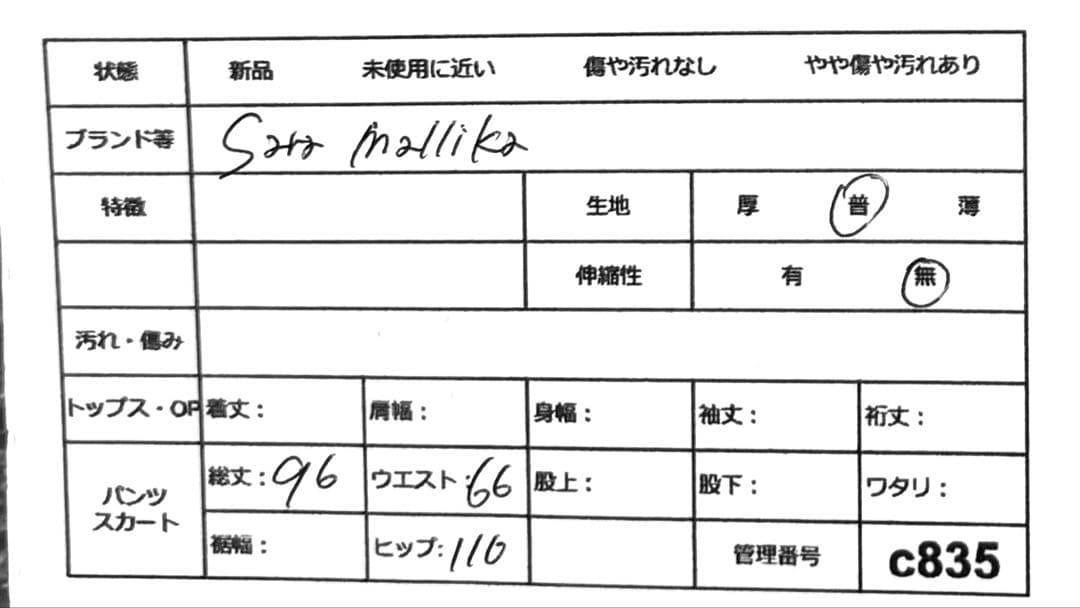 状態 新品 未使用に近い 傷や汚れなし やや傷や汚れあり
ブランド等 Sara mallika
特徴 生地 厚 普 薄
伸縮性 有 無
汚れ・傷み
トップス・OP 着丈： 肩幅： 身幅： 袖丈： 裄丈：
パンツ スカート 総丈：96 ウエスト：66 股上： 股下： ワタリ：
裾幅： ヒップ：110 管理番号 c835